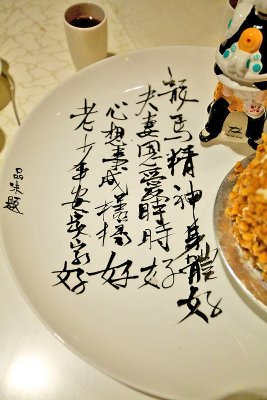 龍馬精神身體好
夫妻恩愛時時好
心想事成樣樣好
老少平安家家好
品味題